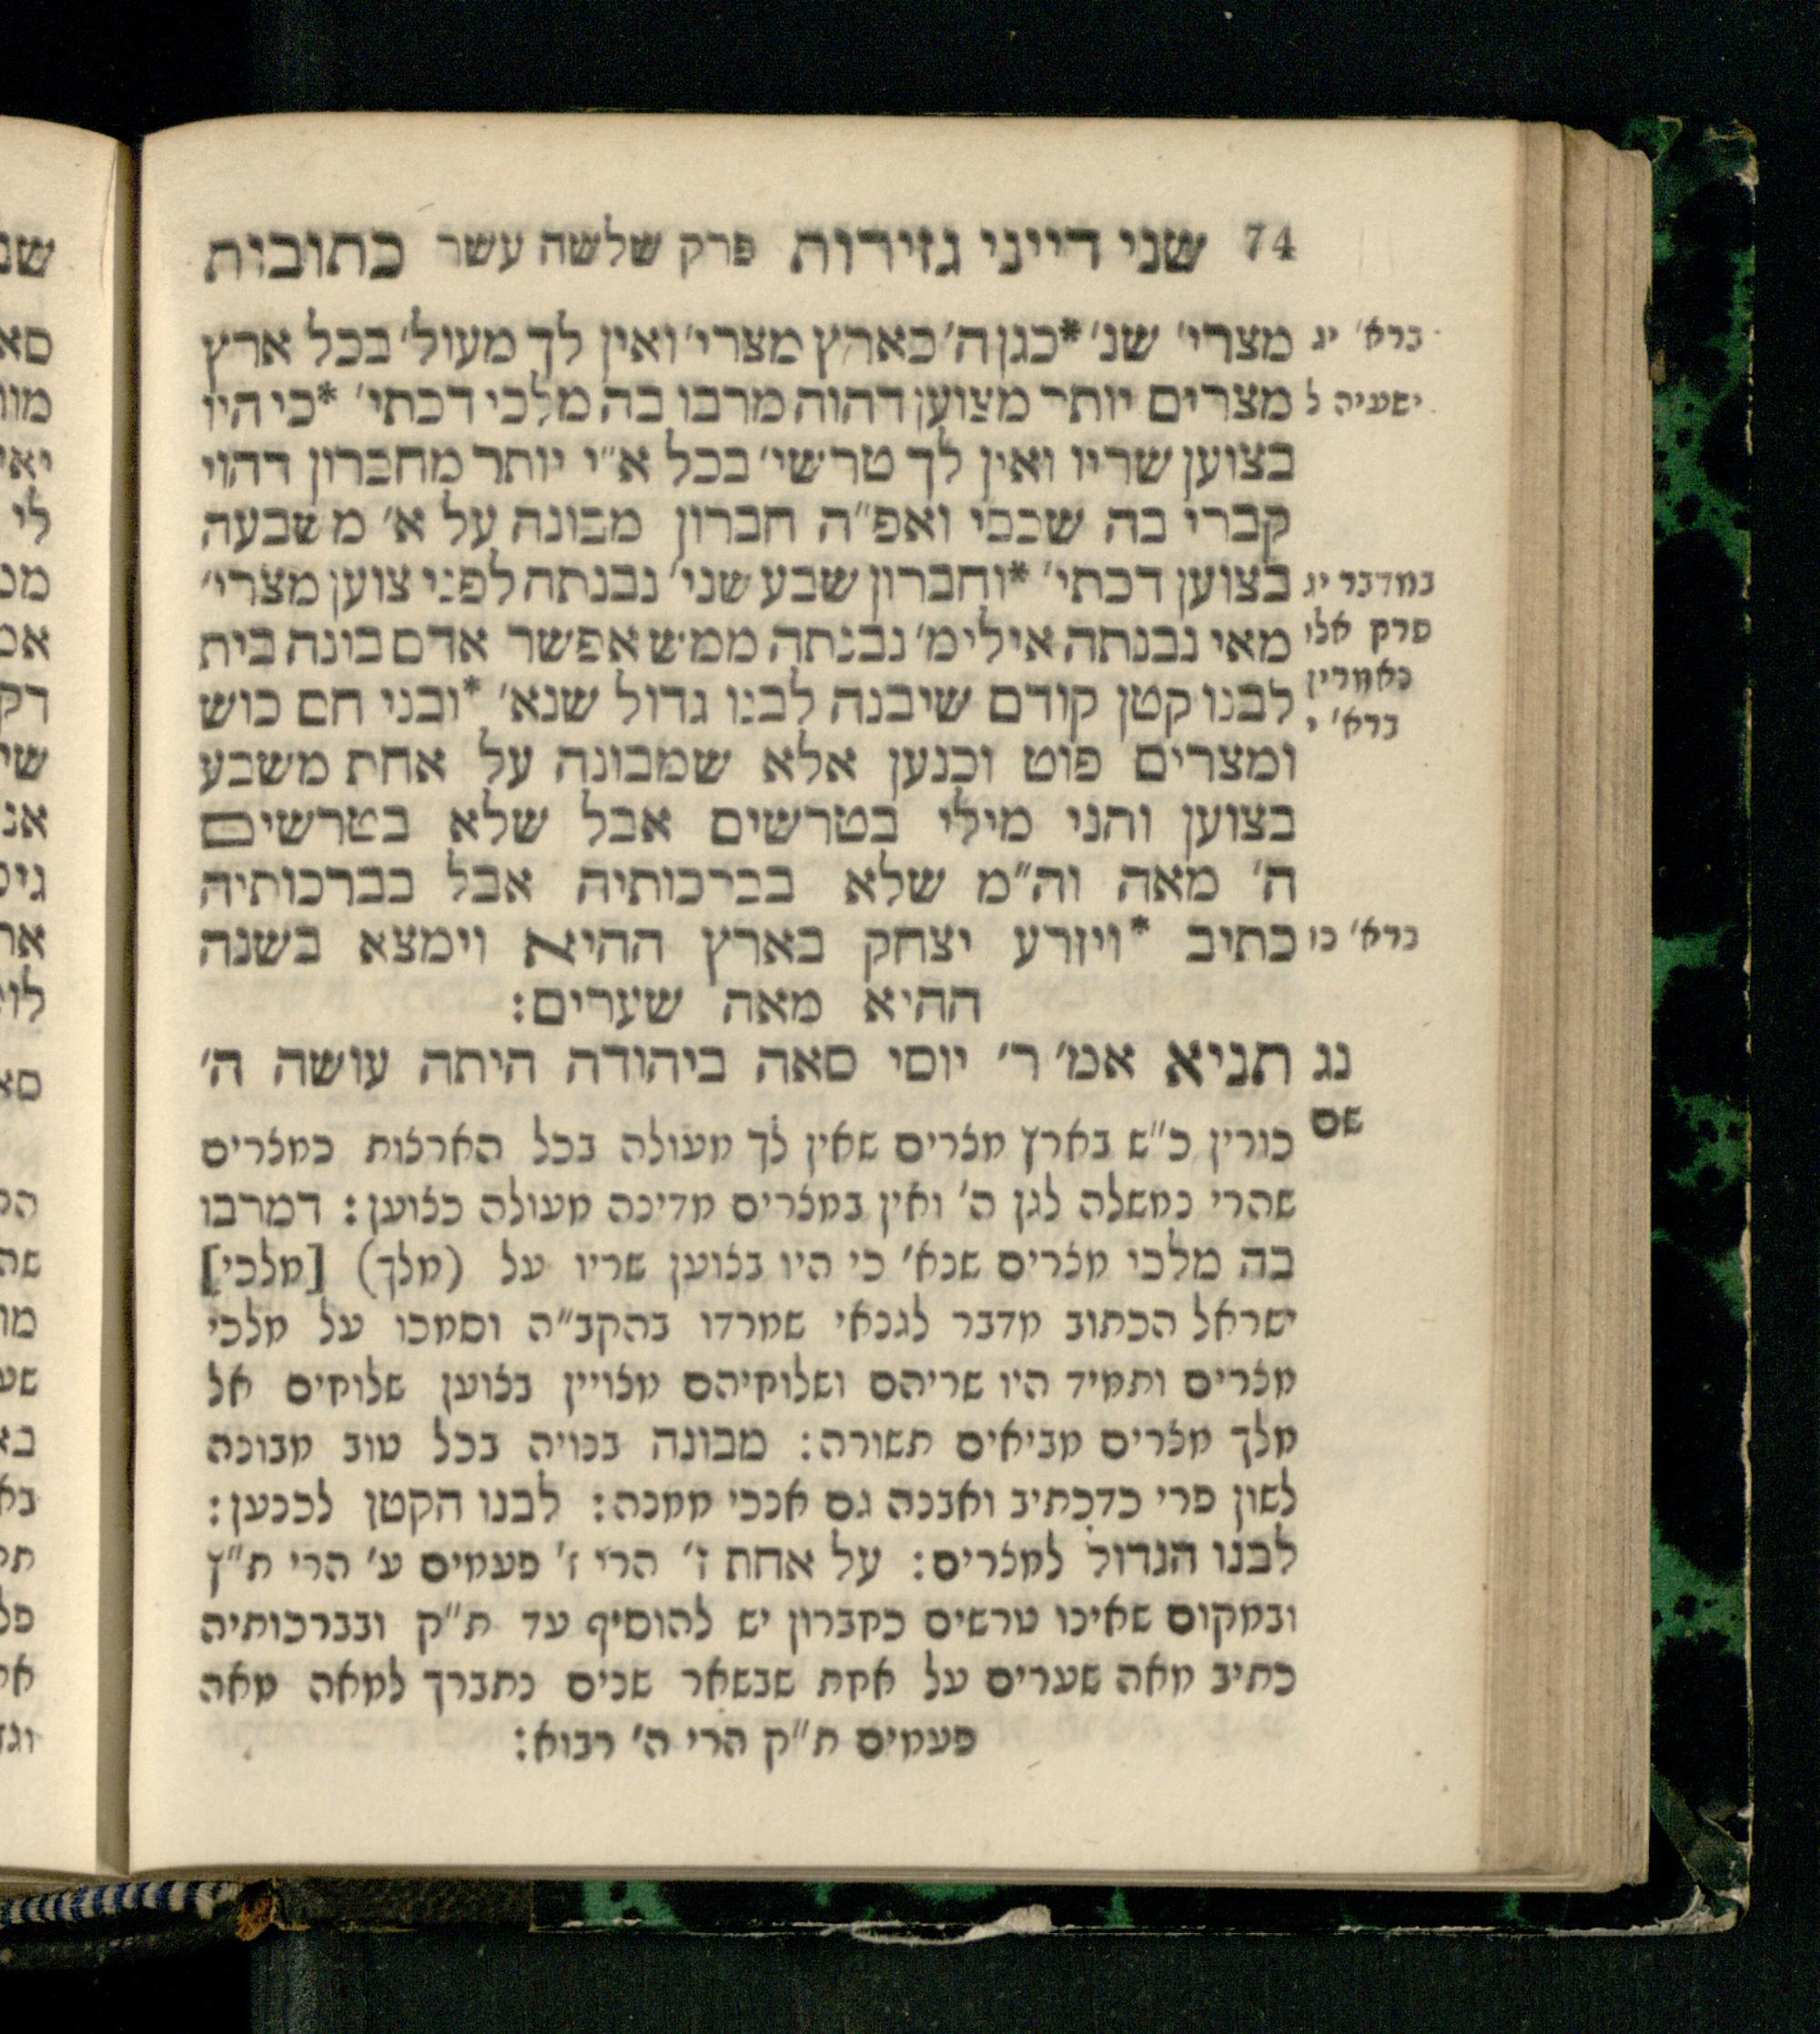 74 שני דייני גזירות פרק שלשה עשר כתובות
ברא׳ יג
מצרי׳ שנ׳ *כגן ה׳ כארץ מצרי׳ ואין לך מעול׳ בכל ארץ
ישעיה ל
מצרים יותר מצוען דהוה מרבו בה מלכי דכתי׳ *כי היו
בצוען שריו ואין לך טרשי׳ בכל א״י יותר מחברון דהוי
קברי בה שכבי ואפ״ה חברון מבונה על א׳ משבעה
במדבר יג
בצוען דכתי׳ *וחברון שבע שני׳ נבנתה לפני צוען מצרי׳
פרק אלו
מאי נבנתה אילימ׳ נבנתה ממש אפשר אדם בונה בית
נאמרין
לבנו קטן קודם שיבנה לבנו גדול שנא׳ *ובני חם כוש
ברא׳ י
ומצרים פוט וכנען אלא שמבונה על אחת משבע
בצוען והני מילי בטרשים אבל שלא בטרשים
ה׳ מאה וה״מ שלא בברכותיה אבל בברכותיה
ברא׳ כו
כתיב *ויזרע יצחק בארץ ההיא וימצא בשנה
ההיא מאה שערים:
נג תניא אמ׳ ר׳ יוסי סאה ביהודה היתה עושה ה׳
שם
כורין כ״ש בארץ מצרים שאין לך מעולה בכל הארצות כמצרים
שהרי נמשלה לגן ה׳ ואין במצרים מדינה מעולה כצוען: דמרבו
בה מלכי מצרים שנא׳ כי היו בצוען שריו על (מלך) [מלכי]
ישראל הכתוב מדבר לגנאי שמרדו בהקב״ה וסמכו על מלכי
מצרים ותמיד היו שריהם ושלוחיהם מצויין בצוען שלוחים אל
מלך מצרים מביאים תשורה: מבונה בנויה בכל טוב מבונה
לשון פרי כדכתיב ואבנה גם אנכי ממנה: לבנו הקטן לכנען:
לבנו הגדול למצרים: על אחת ז׳ הרי ז׳ פעמים ע׳ הרי ת״ץ
ובמקום שאינו טרשים כחברון יש להוסיף עד ת״ק ובברכותיה
כתיב מאה שערים על אחת שבשאר שנים נתברך למאה מאה
פעמים ת״ק הרי ה׳ רבוא: